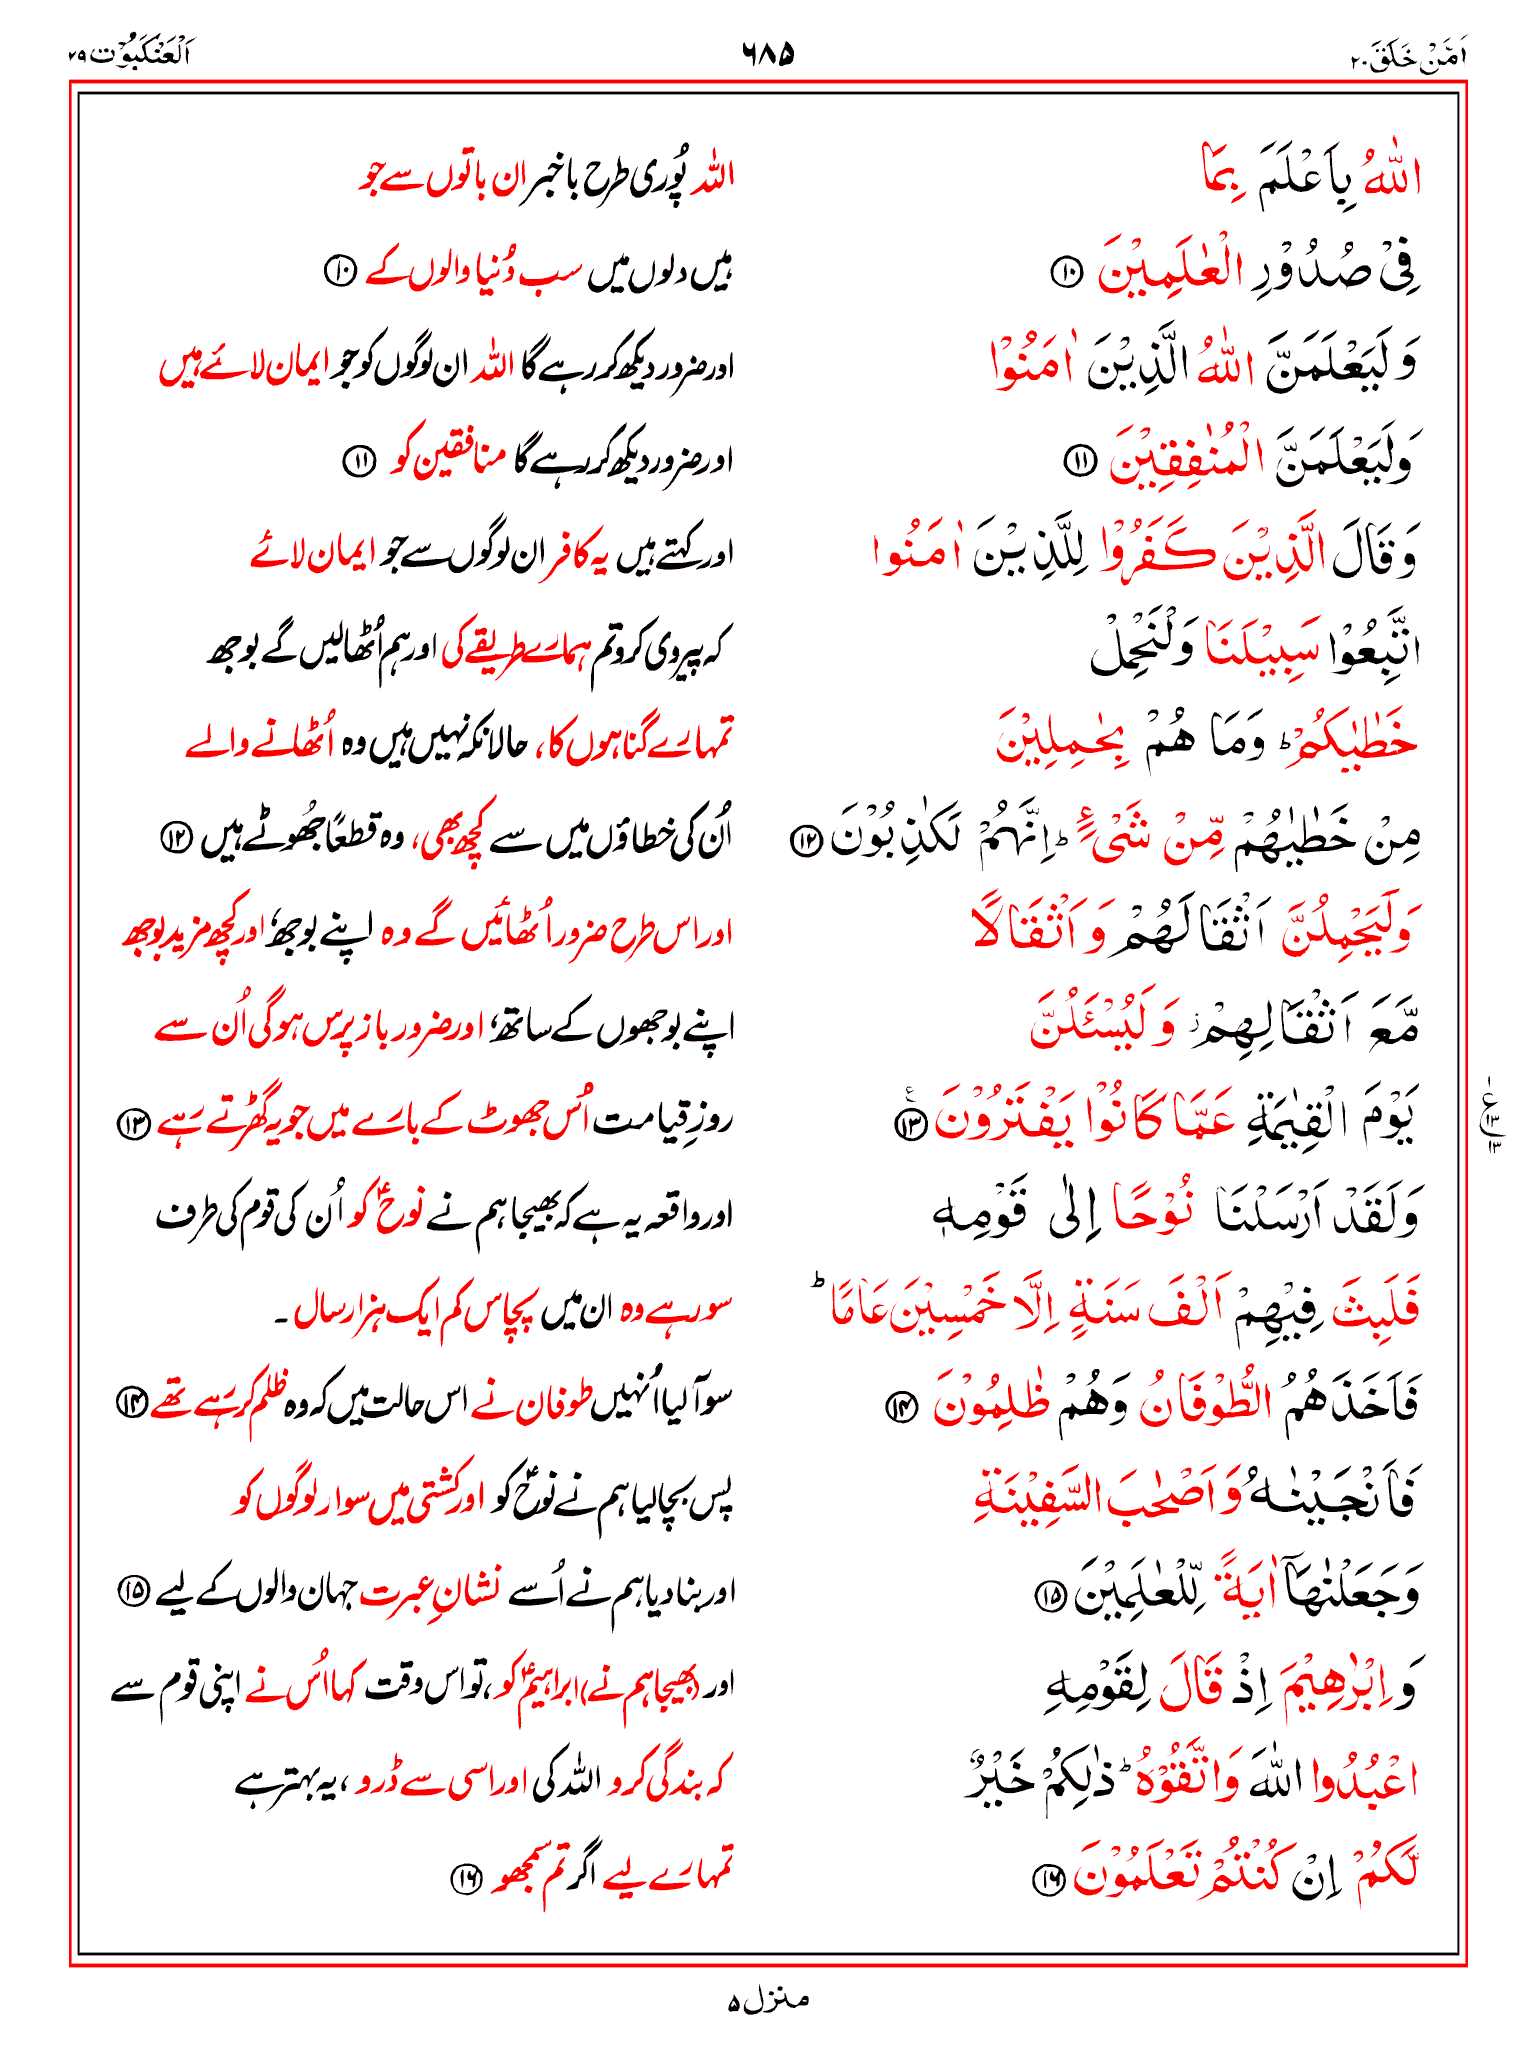 اَمَّنْ خَلَقَ ۲۰ ۶۸۵ اَلْعَنْكَبُوْت ۲۹
اللّٰهُ بِاَعْلَمَ بِمَا اللہ پُوری طرح باخبر ان باتوں سے جو
فِیْ صُدُوْرِ الْعٰلَمِیْنَ ⑩ ہیں دلوں میں سب دُنیا والوں کے ⑩
وَلَیَعْلَمَنَّ اللّٰهُ الَّذِیْنَ اٰمَنُوْا اور ضرور دیکھ کر رہے گا اللہ ان لوگوں کو جو ایمان لائے ہیں
وَلَیَعْلَمَنَّ الْمُنٰفِقِیْنَ ⑪ اور ضرور دیکھ کر رہے گا منافقین کو ⑪
وَقَالَ الَّذِیْنَ كَفَرُوْا لِلَّذِیْنَ اٰمَنُوا اور کہتے ہیں یہ کافر ان لوگوں سے جو ایمان لائے
اتَّبِعُوْا سَبِیْلَنَا وَلْنَحْمِلْ کہ پیروی کرو تم ہمارے طریقے کی اور ہم اُٹھا لیں گے بوجھ
خَطٰیٰكُمْ ؕ وَمَا هُمْ بِحٰمِلِیْنَ تمہارے گناہوں کا، حالانکہ نہیں ہیں وہ اُٹھانے والے
مِنْ خَطٰیٰهُمْ مِّنْ شَیْءٍ ؕ اِنَّهُمْ لَكٰذِبُوْنَ ⑫ اُن کی خطاؤں میں سے کچھ بھی، وہ قطعًا جھُوٹے ہیں ⑫
وَلَیَحْمِلُنَّ اَثْقَالَهُمْ وَاَثْقَالًا اور اس طرح ضرور اُٹھائیں گے وہ اپنے بوجھ، اور کچھ مزید بوجھ
مَّعَ اَثْقَالِهِمْ ؗ وَلَیُسْـَٔلُنَّ اپنے بوجھوں کے ساتھ، اور ضرور باز پرس ہوگی اُن سے
یَوْمَ الْقِیٰمَةِ عَمَّا كَانُوْا یَفْتَرُوْنَ ⑬ ع روزِ قیامت اُس جھوٹ کے بارے میں جو یہ گھڑتے رہے ⑬
ع ۱۳ ۱۳
وَلَقَدْ اَرْسَلْنَا نُوْحًا اِلٰی قَوْمِهٖ اور واقعہ یہ ہے کہ بھیجا ہم نے نوحؑ کو اُن کی قوم کی طرف
فَلَبِثَ فِیْهِمْ اَلْفَ سَنَةٍ اِلَّا خَمْسِیْنَ عَامًا ؕ سو رہے وہ ان میں پچاس کم ایک ہزار سال۔
فَاَخَذَهُمُ الطُّوْفَانُ وَهُمْ ظٰلِمُوْنَ ⑭ سو آ لیا اُنہیں طوفان نے اس حالت میں کہ وہ ظلم کر رہے تھے ⑭
فَاَنْجَیْنٰهُ وَاَصْحٰبَ السَّفِیْنَةِ پس بچا لیا ہم نے نوحؑ کو اور کشتی میں سوار لوگوں کو
وَجَعَلْنٰهَاۤ اٰیَةً لِّلْعٰلَمِیْنَ ⑮ اور بنا دیا ہم نے اُسے نشانِ عبرت جہان والوں کے لیے ⑮
وَاِبْرٰهِیْمَ اِذْ قَالَ لِقَوْمِهِ اور (بھیجا ہم نے) ابراہیمؑ کو، تو اس وقت کہا اُس نے اپنی قوم سے
اعْبُدُوا اللّٰهَ وَاتَّقُوْهُ ؕ ذٰلِكُمْ خَیْرٌ کہ بندگی کرو اللہ کی اور اسی سے ڈرو، یہ بہتر ہے
لَّكُمْ اِنْ كُنْتُمْ تَعْلَمُوْنَ ⑯ تمہارے لیے اگر تم سمجھو ⑯
منزل ۵